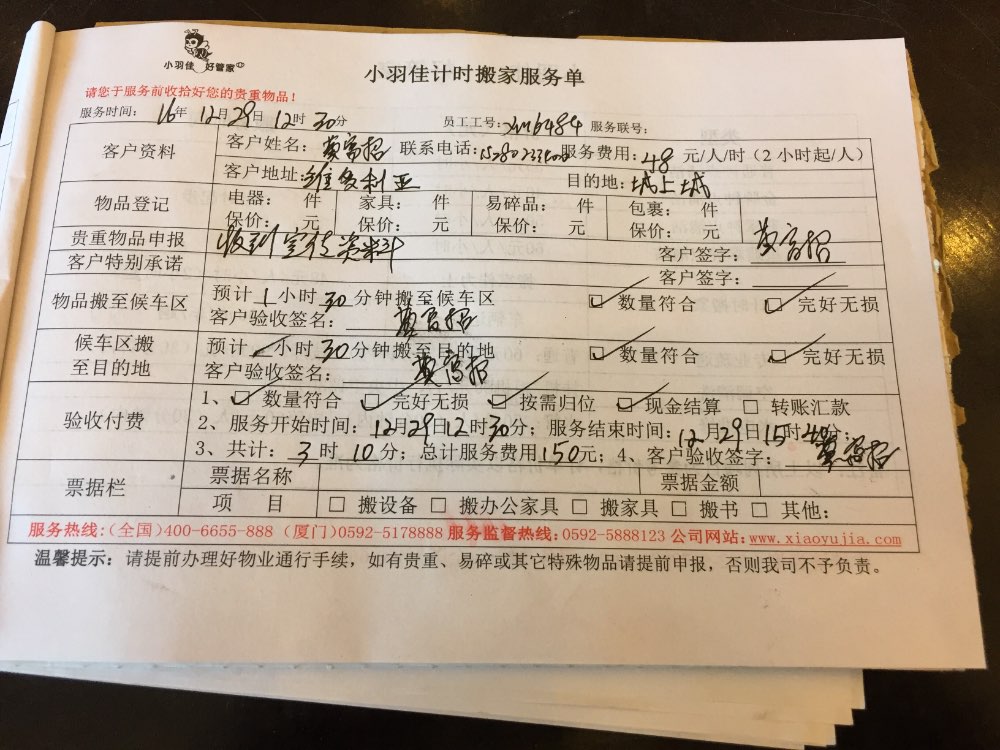 小羽佳 好管家
小羽佳计时搬家服务单
请您于服务前收拾好您的贵重物品！
服务时间： 16年 12月 29日 12时 30分 员工工号： 服务联号：
客户资料 客户姓名： 联系电话： 服务费用：48 元/人/时（2 小时起/人）
客户地址：维多利亚 目的地：城上城
物品登记 电器： 件 家具： 件 易碎品： 件 包裹： 件
保价： 元 保价： 元 保价： 元 保价： 元
贵重物品申报 收到宣传资料 客户签字：
客户特别承诺 客户签字：
物品搬至候车区 预计 1 小时 30 分钟搬至候车区 ☑ 数量符合 ☑ 完好无损
客户验收签名：
候车区搬至目的地 预计 小时 30 分钟搬至目的地 ☑ 数量符合 ☑ 完好无损
客户验收签名：
验收付费 1、☑ 数量符合 ☑ 完好无损 ☑ 按需归位 ☑ 现金结算 □ 转账汇款
2、服务开始时间：12月29日12时30分；服务结束时间：12月29日15时40分；
3、共计：3 时 10 分；总计服务费用150元；4、客户验收签字：
票据栏 票据名称 票据金额
项 目 □ 搬设备 □ 搬办公家具 □ 搬家具 □ 搬书 □ 其他：
服务热线：（全国）400-6655-888（厦门）0592-5178888 服务监督热线：0592-5888123 公司网站：www.xiaoyujia.com
温馨提示：请提前办理好物业通行手续，如有贵重、易碎或其它特殊物品请提前申报，否则我司不予负责。